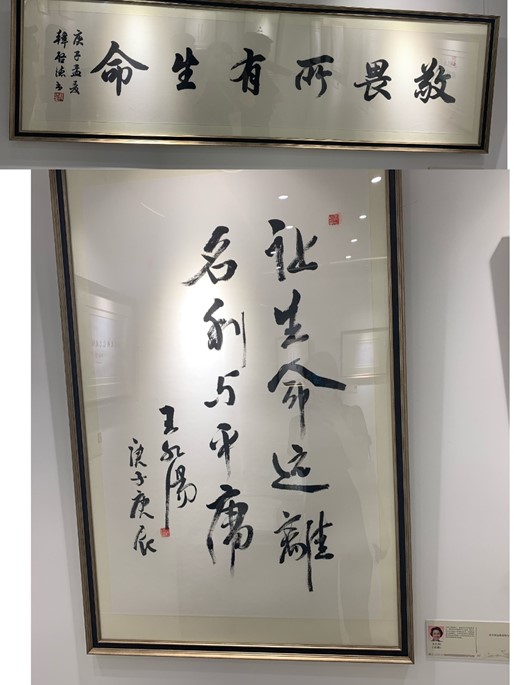 敬畏所有生命
庚子孟夏
韩启德书
让生命远離
名利与平庸
王水
庚子庚辰